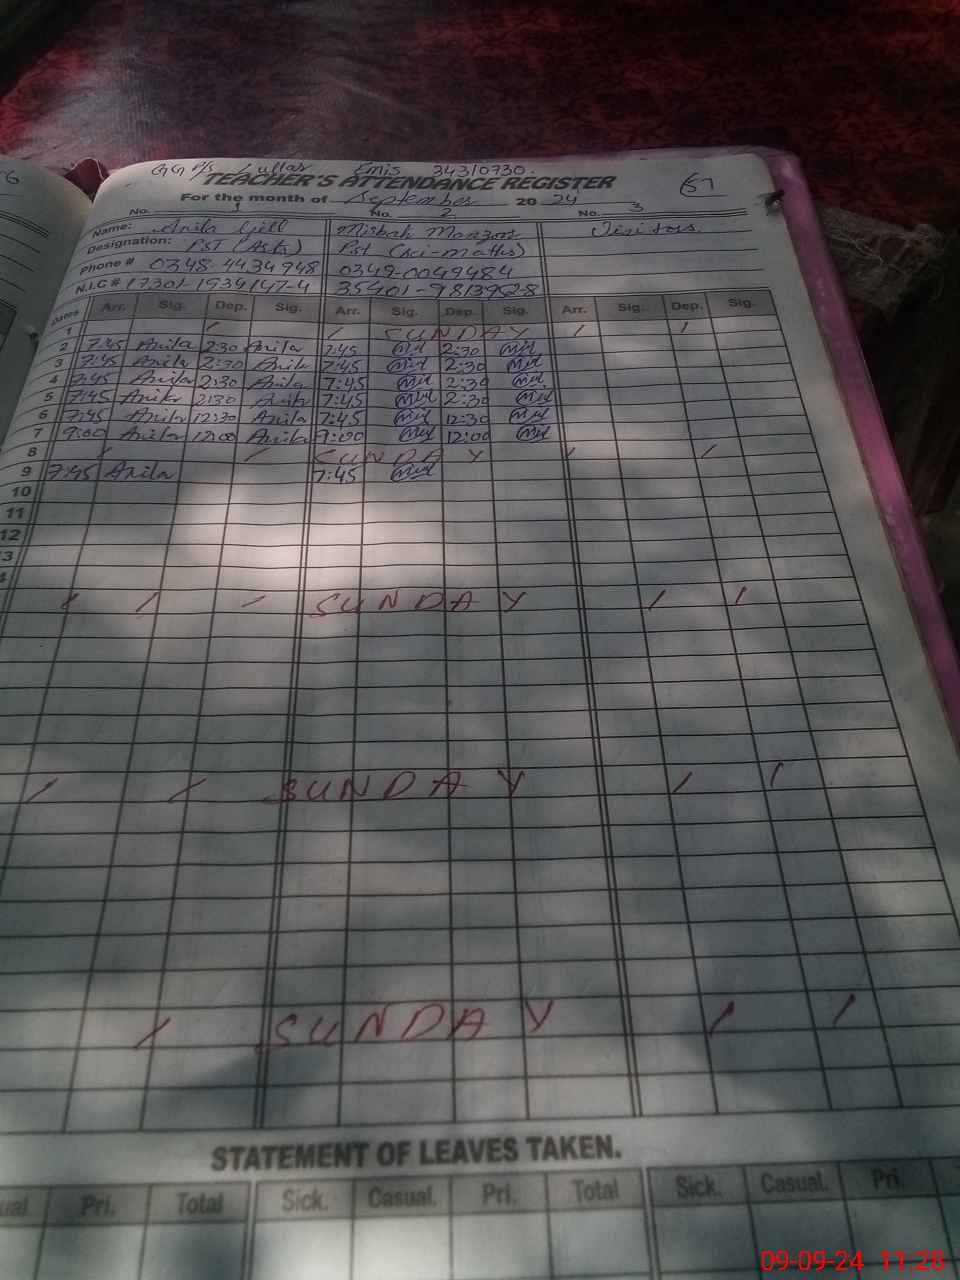 GG P/S Lullar Emis 34310730.
TEACHER'S ATTENDANCE REGISTER 57
For the month of September 20 24
No. 1 No. 2 No. 3
Name: Anila Gill Misbah Manzoor Visitors.
Designation: PST (Arts) Pst (sci-maths)
Phone # 0348-4434948 0349-0049484
N.I.C # 17301-1934147-4 35401-9813952-8
Dates Arr. Sig. Dep. Sig. Arr. Sig. Dep. Sig. Arr. Sig. Dep. Sig.
1 SUNDAY
2 7:45 Anila 2:30 Anila 7:45 2:30
3 7:45 Anila 2:30 Anila 7:45 2:30
4 7:45 Anila 2:30 Anila 7:45 2:30
5 7:45 Anila 2:30 Anila 7:45 2:30
6 7:45 Anila 12:30 Anila 7:45 12:30
7 9:00 Anila 12:00 Anila 9:00 12:00
8 SUNDAY
9 7:45 Anila 7:45
10
11
12
13
4
SUNDAY
SUNDAY
SUNDAY
STATEMENT OF LEAVES TAKEN.
ual Pri. Total Sick. Casual. Pri. Total Sick. Casual. Pri.
09-09-24 11:28